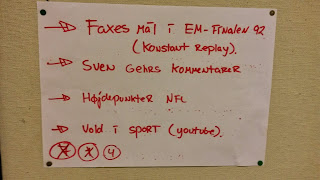 → Faxes mål i EM-Finalen 92
(Konstant Replay).
→ Sven Gehrs Kommentarer
→ Højdepunkter NFL
→ Vold i sport (youtube).
4